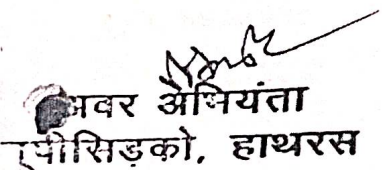 अवर अभियंता
यूपीसिडको, हाथरस